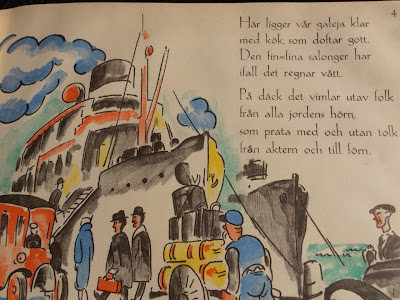 4
Här ligger vår galeja klar
med kök, som doftar gott.
Den fin=fina salonger har
ifall det regnar vått.
På däck det vimlar utav folk
från alla jordens hörn,
som prata med och utan tolk
från aktern och till förn.